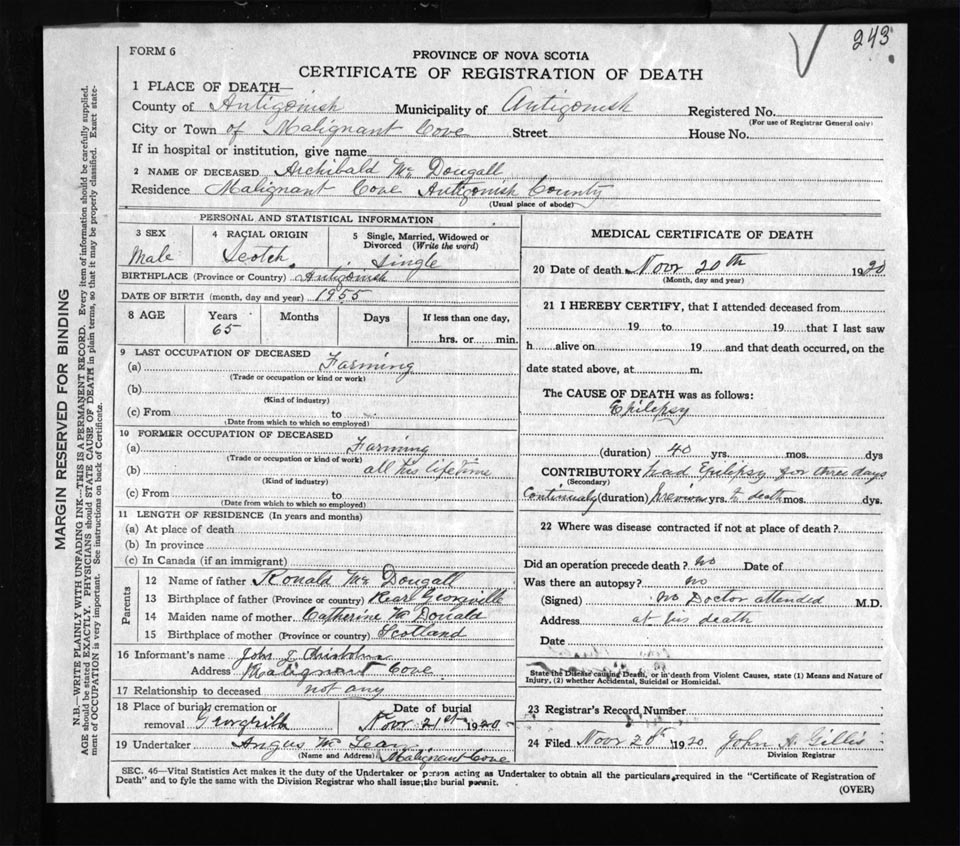 243
FORM 6
PROVINCE OF NOVA SCOTIA
CERTIFICATE OF REGISTRATION OF DEATH
1 PLACE OF DEATH—
County of Antigonish Municipality of Antigonish Registered No.
(For use of Registrar General only)
City or Town of Malignant Cove Street House No.
If in hospital or institution, give name
2 NAME OF DECEASED Archibald Mc Dougall
Residence Malignant Cove Antigonish County
(Usual place of abode)
PERSONAL AND STATISTICAL INFORMATION
3 SEX
Male
4 RACIAL ORIGIN
Scotch
5 Single, Married, Widowed or
Divorced (Write the word)
Single
BIRTHPLACE (Province or Country) Antigonish
DATE OF BIRTH (month, day and year) 1955
8 AGE Years Months Days If less than one day,
65 hrs. or min.
9 LAST OCCUPATION OF DECEASED
(a) Farming
(Trade or occupation or kind or work)
(b)
(Kind of industry)
(c) From to
(Date from which to which so employed)
10 FORMER OCCUPATION OF DECEASED
(a) Farming
(Trade or occupation or kind of work)
(b) all his lifetime
(Kind of industry)
(c) From to
(Date from which to which so employed)
11 LENGTH OF RESIDENCE (In years and months)
(a) At place of death
(b) In province
(c) In Canada (if an immigrant)
Parents
12 Name of father Ronald Mc Dougall
13 Birthplace of father (Province or country) Rear Georgville
14 Maiden name of mother Catherine Mc Donald
15 Birthplace of mother (Province or country) Scotland
16 Informant's name John J. Chisholm
Address Malignant Cove
17 Relationship to deceased not any
18 Place of burial, cremation or Date of burial
removal Georgville Novr 21st 1920
19 Undertaker Angus Mc
(Name and Address) Malignant Cove
MEDICAL CERTIFICATE OF DEATH
20 Date of death Novr 20th 1920
(Month, day and year)
21 I HEREBY CERTIFY, that I attended deceased from
19 to 19 that I last saw
h alive on 19 and that death occurred, on the
date stated above, at m.
The CAUSE OF DEATH was as follows:
Epilepsy
(duration) 40 yrs. mos. dys
CONTRIBUTORY had Epilepsy for three days
(Secondary)
Continualy (duration) previous yrs. to death mos. dys.
22 Where was disease contracted if not at place of death?
Did an operation precede death? no Date of
Was there an autopsy? no
(Signed) no Doctor attended M.D.
Address at his death
Date
State the Disease causing Death, or in death from Violent Causes, state (1) Means and Nature of
Injury, (2) whether Accidental, Suicidal or Homicidal.
23 Registrar's Record Number
24 Filed Novr 20th 1920 John A Gillis
Division Registrar
SEC. 46—Vital Statistics Act makes it the duty of the Undertaker or person acting as Undertaker to obtain all the particulars required in the "Certificate of Registration of
Death" and to fyle the same with the Division Registrar who shall issue the burial permit.
(OVER)
MARGIN RESERVED FOR BINDING
N.B.—WRITE PLAINLY WITH UNFADING INK—THIS IS A PERMANENT RECORD. Every item of information should be carefully supplied.
AGE should be stated EXACTLY. PHYSICIANS should STATE CAUSE OF DEATH in plain terms, so that it may be properly classified. Exact state-
ment of OCCUPATION is very important. See instructions on back of Certificate.